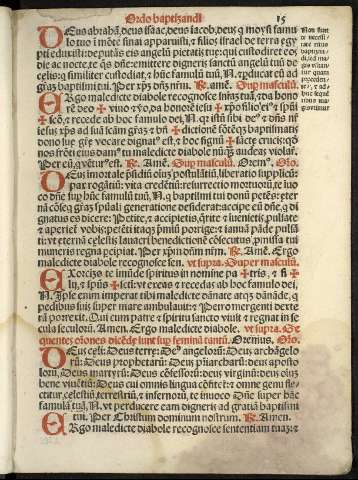 Ordo baptizandi 15
DEus abrahã, deus isaac, deus iacob, deus q̃ moysi famu
lo tuo ĩ mõte sinai apparuisti, ⁊ filios israel de terra egy
pti eduxisti: deputãs eis angelũ pietatis tue: qui custodiret eos
die ac nocte, te q̃s dñe: emittere digneris sanctũ angelũ tuũ de
celis: q̃ similiter custodiat, ⁊ hũc famulũ tuũ, N. ⁊ ducat eũ ad
gr̃am baptismi tui. Per xp̃m dñm nr̃m. ℟. amẽ. Sup masculũ.
ERgo maledicte diabole recognosce sñiaʒ tuã, ⁊ da hono
rẽ deo ✠ viuo ⁊ vo, da honorẽ iesu ✠ xp̃o filio ei⁹ ⁊ spũi
✠ scõ, ⁊ recede ab hoc famulo dei, N. qr istũ sibi de⁹ ⁊ dñs nr̃
iesus xp̃s ad suã scãm gr̃aʒ ⁊ bñ ✠ dictionẽ fõtẽq̃ʒ baptismatis
dono
vocare dignat⁹ est, ⁊ hoc signũ ✠ sãcte crucis: qð
nos frõti eius dam⁹ tu maledicte diabole nũq̃ʒ audeas violar.
Per eũ, q̃ vẽtur⁹ est. ℟. Amẽ. Sup masculũ. Orem⁹. Oro.
DEus immortale psidiũ oim postulãtiũ, liberatio supplicũ:
pax rogãtiũ: vita credẽtiũ: resurrectio mortuorũ, te iuo
co dñe sup hũc famulũ tuũ, N. q baptismi tui donũ petẽs: eter
nã cõseq̃ gr̃aʒ spũali generatione desiderat: accipe eũ dñe, ⁊ q̃
dignatus es dicere: Petite, ⁊ accipietis, q̃rite ⁊ inuenietis, pulsate
⁊ aperiet̃ vobis: petẽti itaqʒ p̃miũ porrige: ⁊ ianuã pãde pulsã
ti: vt eternã celestis lauacri benedictionẽ cõsecutus, p̃missa tui
muneris regna p̃cipiat. Per xp̃m dñm nr̃m. ℟. Amẽ. ERgo
maledicte diabole recognosce sen. vt supra. Super masculũ.
EXorcizo te imũde spiritus in nomine pa ✠ tris, ⁊ fi ✠
lij, ⁊ spũs ✠ scti: vt exeas ⁊ recedas ab hoc famulo dei,
N. Ipse enim imperat tibi maledicte dãnate atqʒ dãnãde, q
pedibus sup mare ambulauit: ⁊ Petro mergenti dexte
rã porrexit. Qui cum patre ⁊ spiritu sancto viuit ⁊ regnat in se
cula seculorũ. Amen. Ergo maledicte diabole. vt supra. Se
quentes orones dicẽde sunt sup feminã tantũ. Oremus. Oro.
DEus celi: Deus terre: De⁹ angelorũ: Deus archãgelo
rũ: Deus prophetarũ: Deus p̃riarcharũ: deus aposto
lorũ, Deus martyrũ: Deus cõfessorũ: deus virginũ: deus oĩm
bene viuẽtiũ: Deus cui omnis lingua cõfitet̃: ⁊ omne genu fle
ctitur, celestiũ, terrestriũ, ⁊ infernorũ, te inuoco Dñe super hãc
famulã tuã, N. vt perducere eam digneris ad gratiã baptismi
tui. Per Christum dominum nostrum. ℟. Amen.
ERgo maledicte diabole recognosce sententiam tuaʒ: ⁊
Non sunt